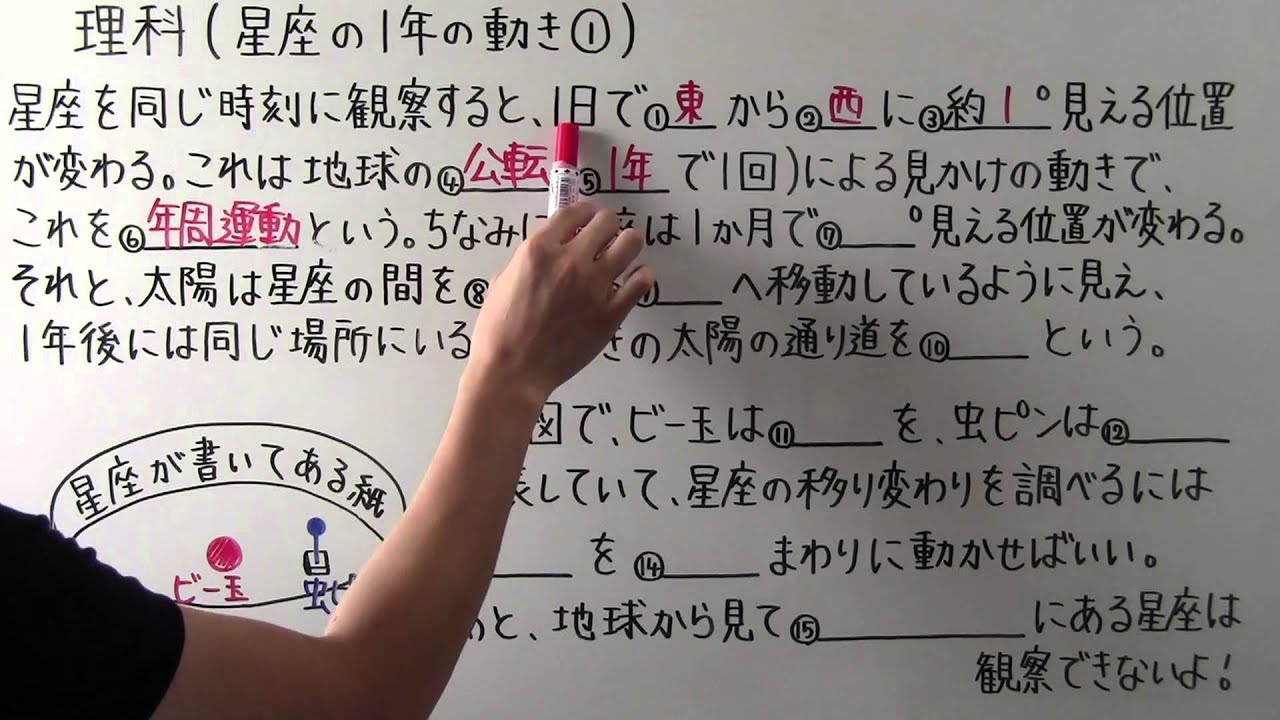 理科(星座の1年の動き①)
星座を同じ時刻に観察すると、1日で①東から②西に③約1°見える位置
が変わる。これは地球の④公転 ⑤1年で1回)による見かけの動きで、
これを⑥年周運動という。ちなみに 座は1か月で⑦___°見える位置が変わる。
それと、太陽は星座の間を⑧ ___へ移動しているように見え、
1年後には同じ場所にいる きの太陽の通り道を⑩___という。
星座が書いてある紙
ビー玉
虫ピ
図で、ビー玉は⑪___を、虫ピンは⑫___
表していて、星座の移り変わりを調べるには
___を⑭___まわりに動かせばいい。
あと、地球から見て⑮___にある星座は
観察できないよ!